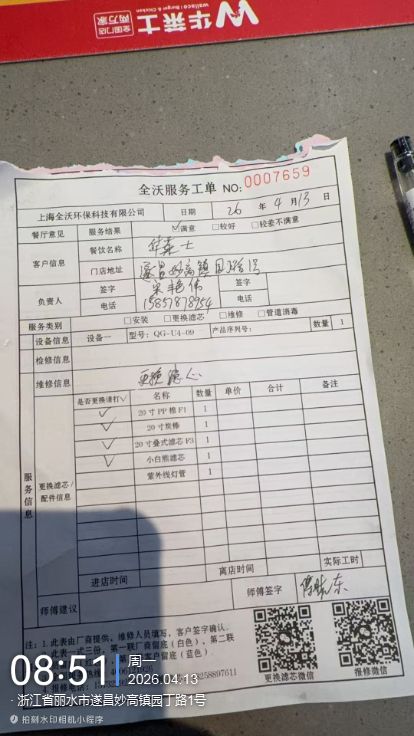 全国门店
两万家
Wallace | Burger & Chicken
华莱士
全沃服务工单 NO: 0007659
上海全沃环保科技有限公司 日期 26 年 4 月 13 日
餐厅意见 服务结果 ☑满意 □较好 □较差不满意
客户信息 餐饮名称 华莱士
门店地址 遂昌妙高镇园丁路1号
负责人 签字 签字
电话 15857878954 电话
服务类别 □安装 □更换滤芯 □维修 □管道消毒
设备信息 设备一 型号: QG-U4-09 产品序列号: 数量 1
检修信息
维修信息 更换滤心
服务信息 更换滤芯/配件信息 是否更换请打√ 名称 数量 单价 合计 备注
√ 20寸PP棉F1 1
√ 20寸炭棒 1
√ 20寸叠式滤芯F3 1
√ 小白熊滤芯 1
紫外线灯管 1
进店时间 离店时间 实际工时
师傅建议 师傅签字
注: 1.此表由厂商提供, 维修人员填写, 客户签字确认.
2.此表一式三份, 第一联厂商留底(白色), 第二联
客户留底(蓝色).
更换滤芯微信 报修微信
08:51 周一
2026.04.13
·浙江省丽水市遂昌妙高镇园丁路1号
拍刻水印相机小程序